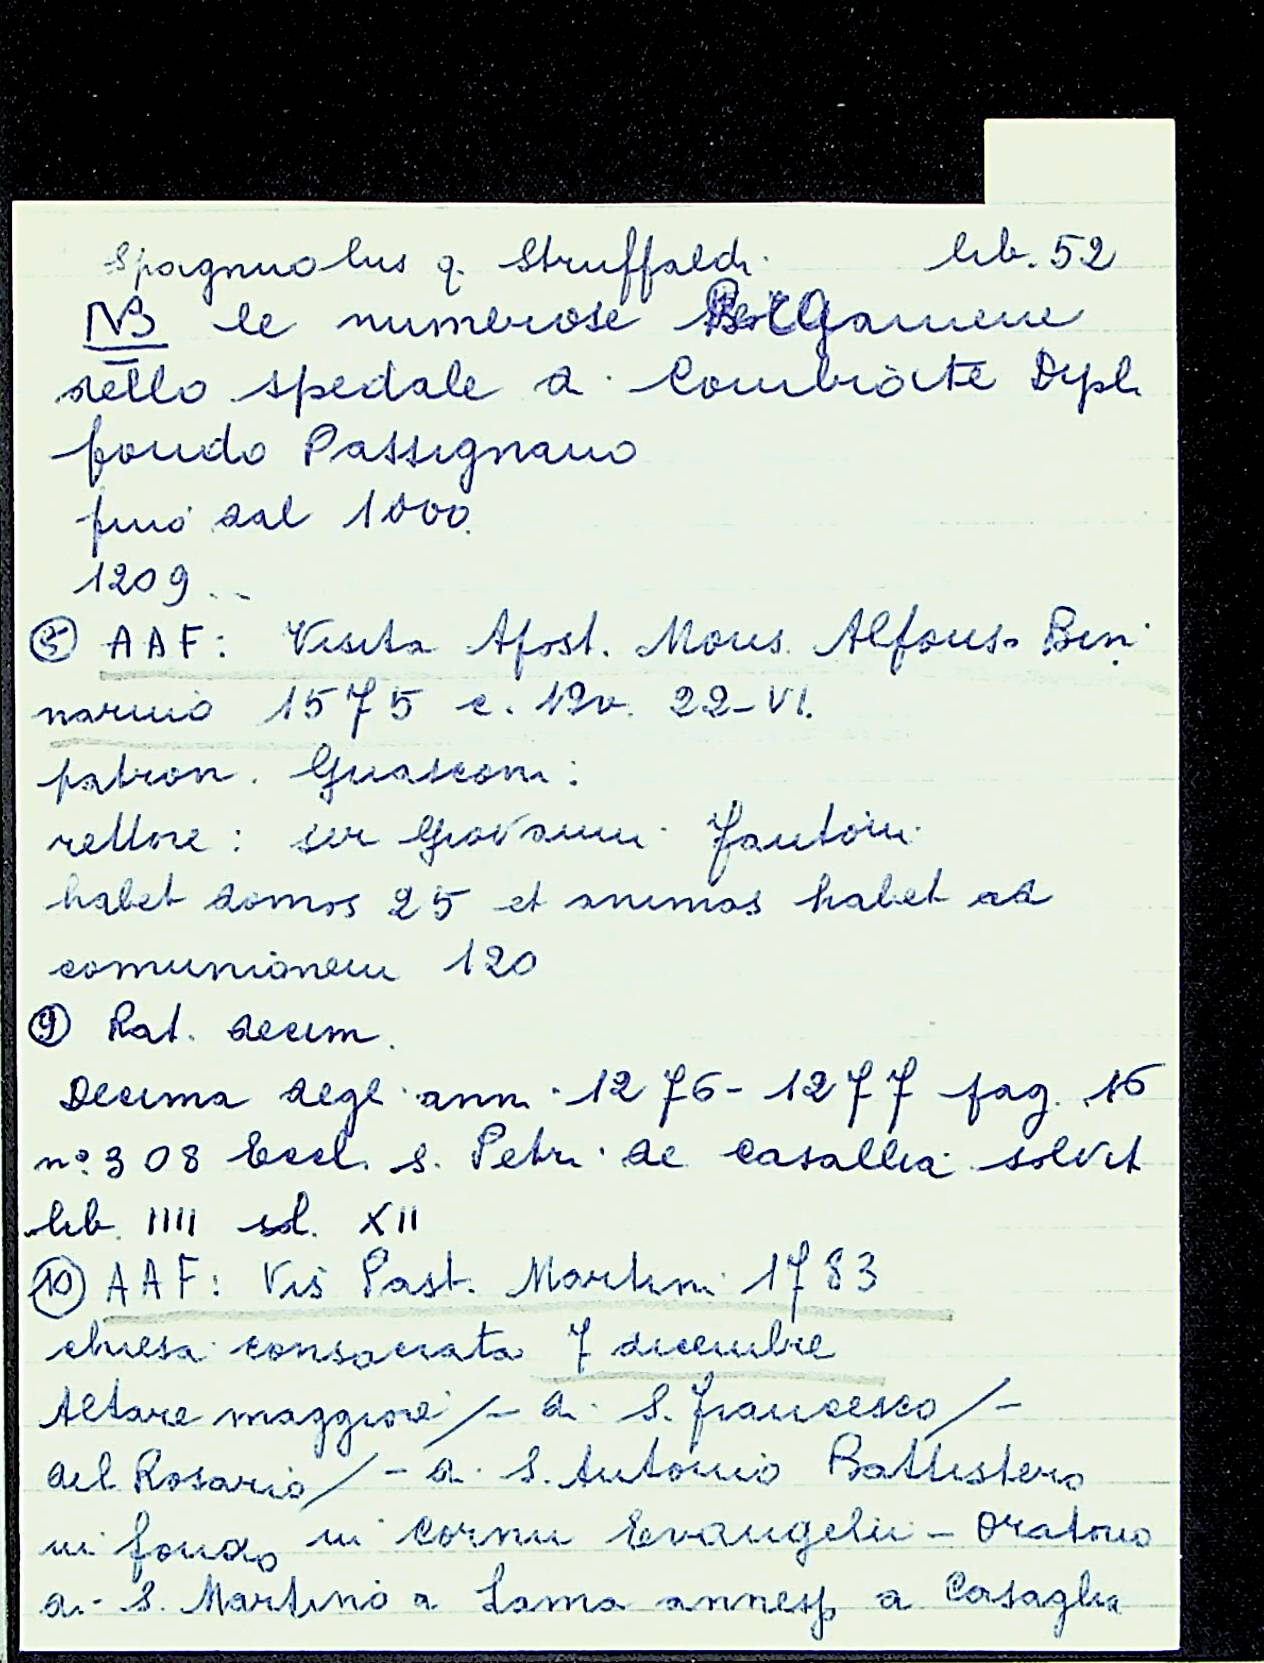 Spagnuolus q. Struffaldi lib. 52
NB le numerose Pergamene
dello spedale di Combiate Dipl.
fondo Passignano
fino dal 1000.
1209..
⑤ AAF: Visita Apost. Mons. Alfonso Bin
narino 1575 c. 12v. 22-VI.
patron. Guasconi:
rettore: ser Giovanni Fantoni
habet domos 25 et animas habet ad
comunionem 120
⑨ Rat. decim.
Decima degli anni 1276-1277 pag. 16
n° 308 Eccl. S. Petri de Casallia solvit
lib. IIII sol. XII
⑩ AAF: Vis Past. Martini 1783
chiesa consacrata 7 dicembre
Altare maggiore /- di S. Francesco /-
del Rosario /- di S. Antonio Battistero
in fondo in cornu Evangelii - Oratorio
di S. Martino a Lama a Casaglia